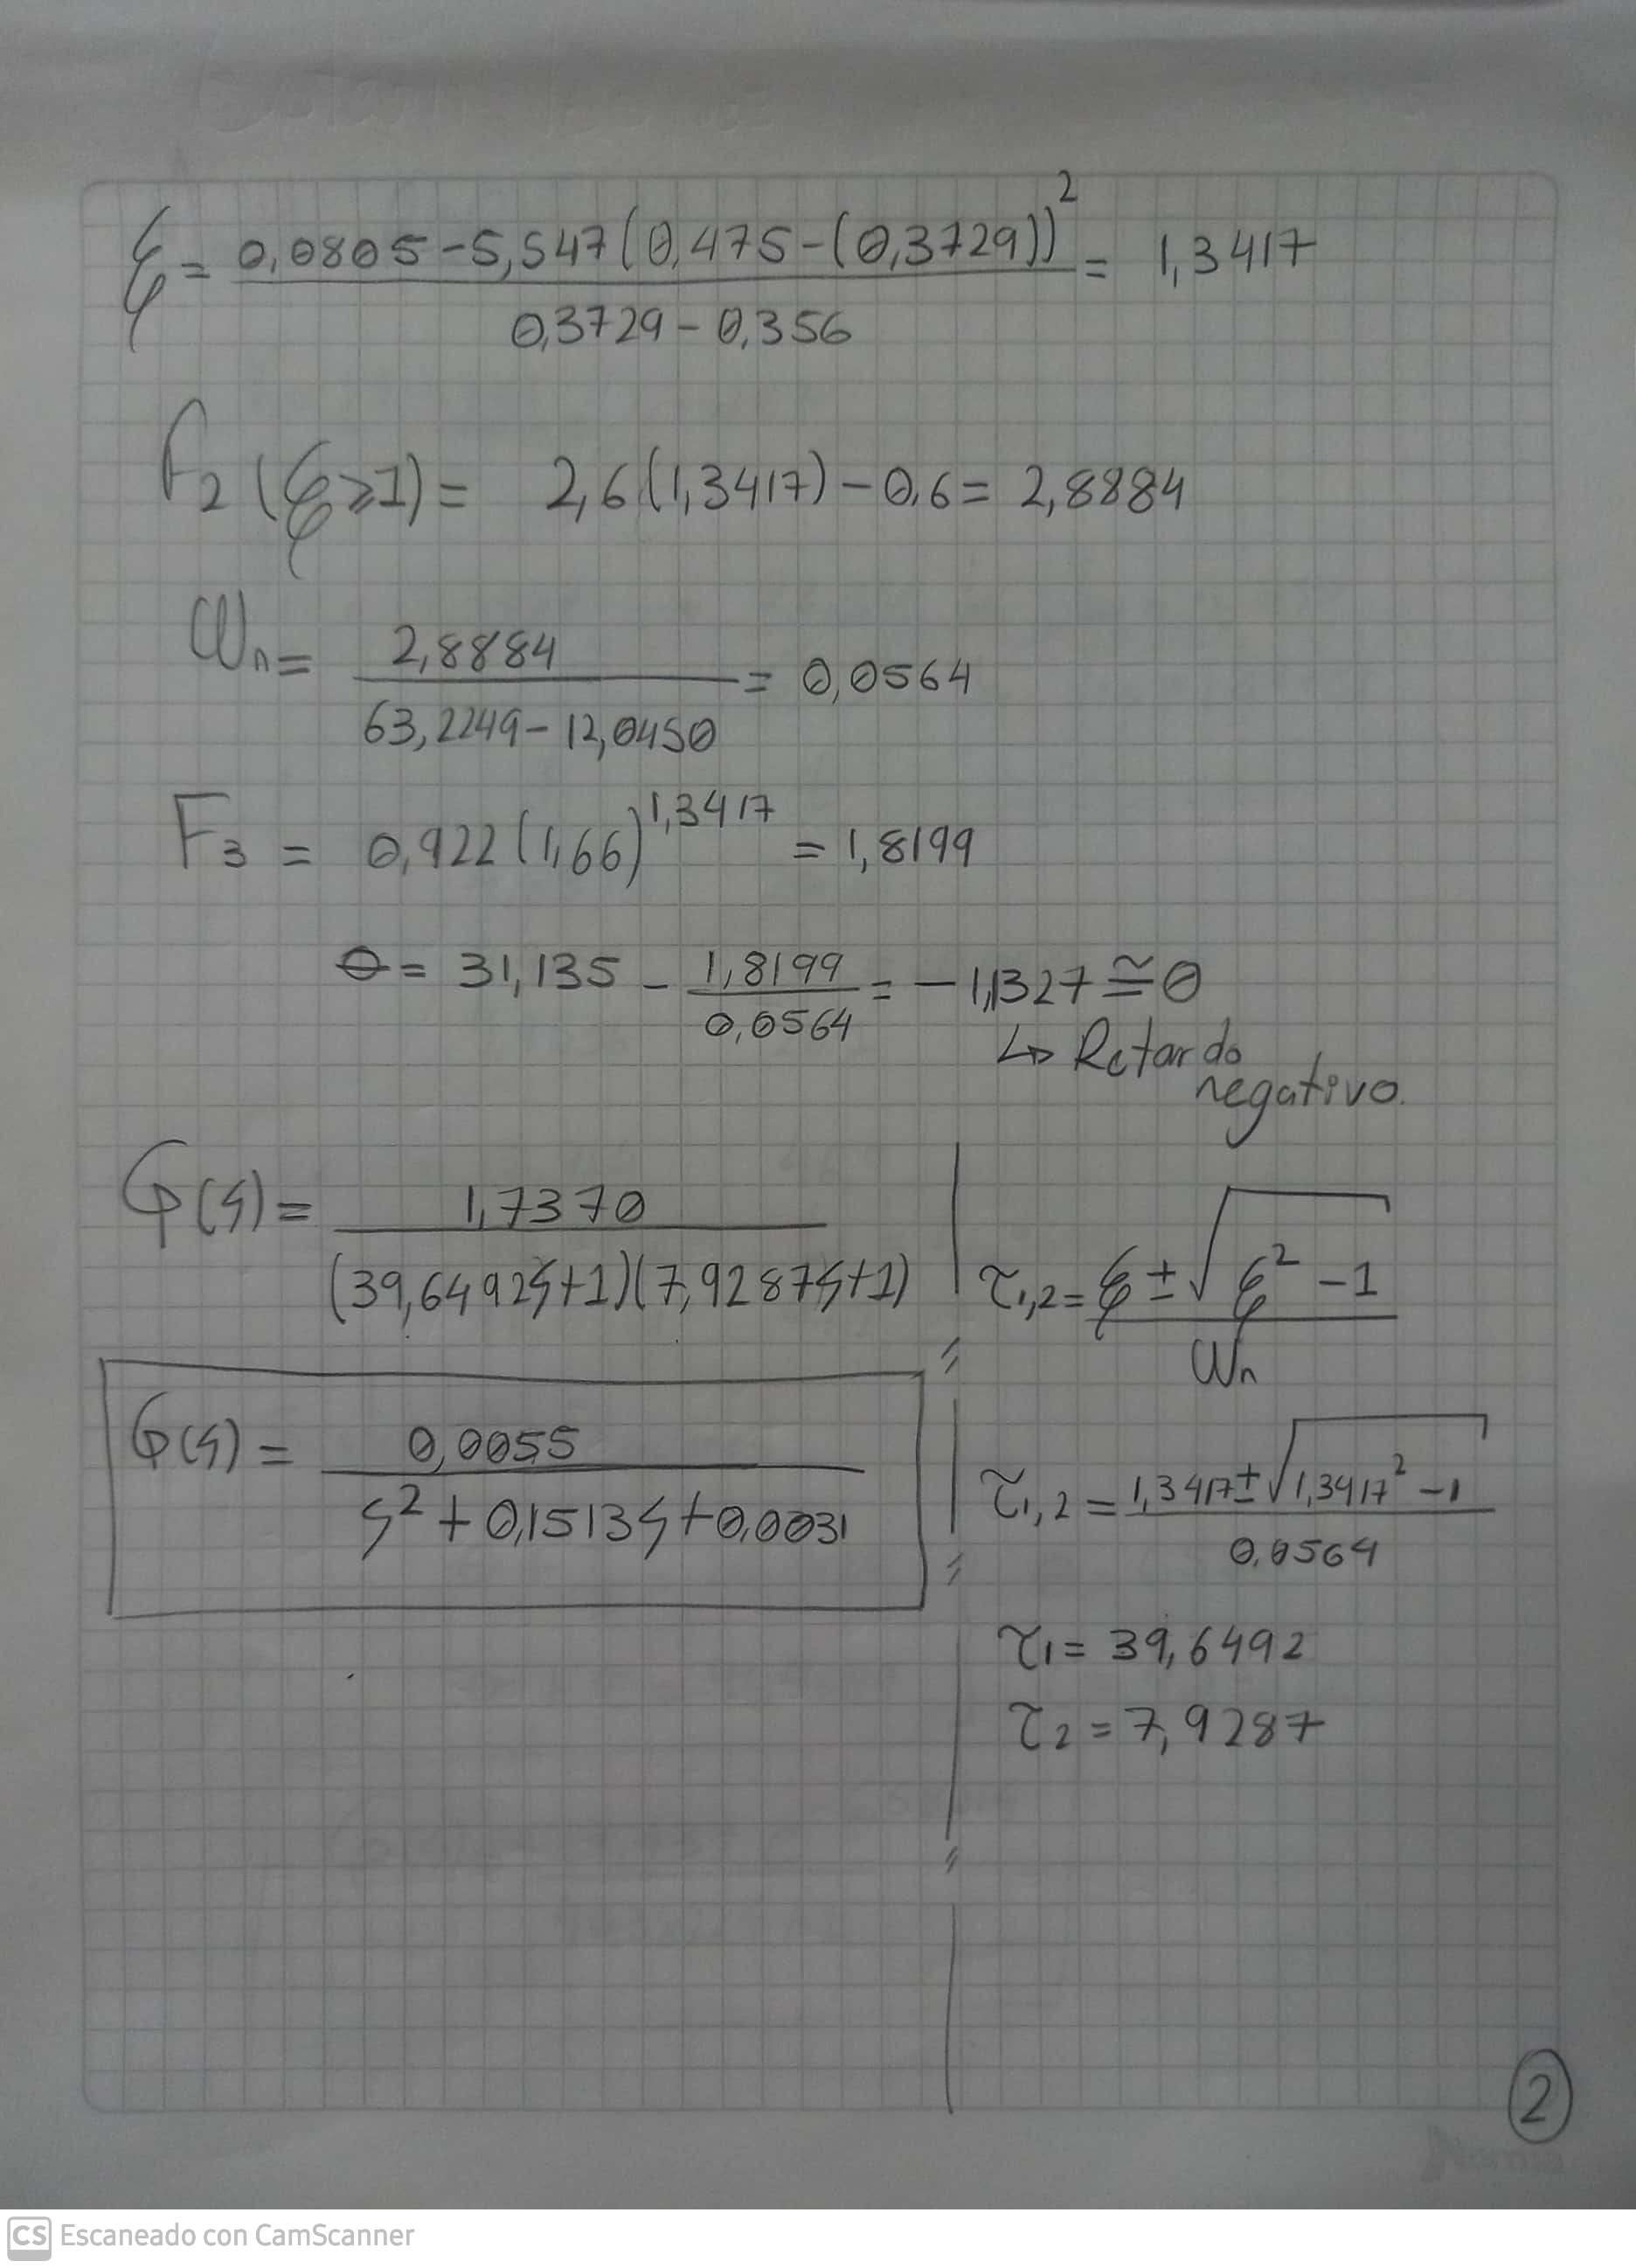 ξ = (0,0805 - 5,547(0,475 - (0,3729))²) / (0,3729 - 0,356) = 1,3417
F₂(ξ≥1) = 2,6(1,3417) - 0,6 = 2,8884
Wn = 2,8884 / (63,2249 - 12,0450) = 0,0564
F₃ = 0,922(1,66)^1,3417 = 1,8199
θ = 31,135 - 1,8199 / 0,0564 = -1,1327 ≅ 0
↳ Retardo
negativo.
G(s) = 1,7370 / (39,6492s+1)(7,9287s+1)
τ₁,₂ = (ξ ± √(ξ² - 1)) / Wn
G(s) = 0,0055 / (s² + 0,1513s + 0,0031)
τ₁,₂ = (1,3417 ± √(1,3417² - 1)) / 0,0564
τ₁ = 39,6492
τ₂ = 7,9287
2
CS Escaneado con CamScanner